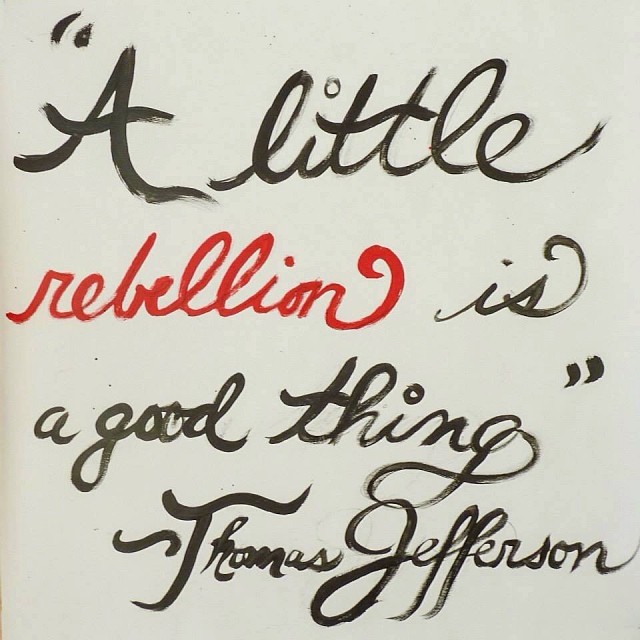 “A little
rebellion is
a good thing”
~Thomas Jefferson